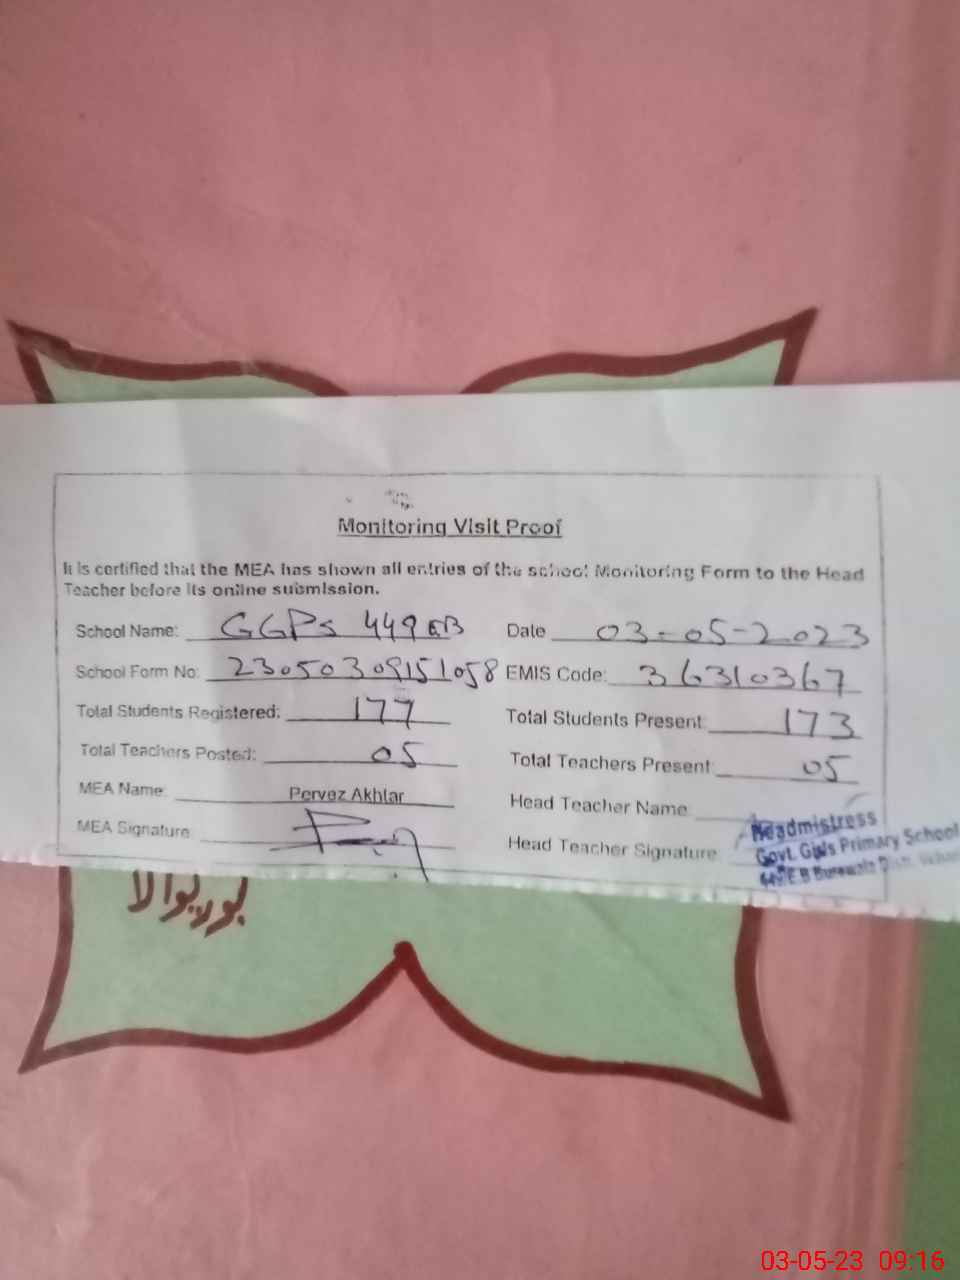 Monitoring Visit Proof
It is certified that the MEA has shown all entries of the school Monitoring Form to the Head
Teacher before its online submission.
School Name: GGPS 449 EB Date 03-05-2023
School Form No: 23050309151058 EMIS Code: 36310367
Total Students Registered: 177 Total Students Present: 173
Total Teachers Posted: 05 Total Teachers Present: 05
MEA Name: Pervez Akhtar Head Teacher Name
MEA Signature Head Teacher Signature
Headmistress
Govt. Girls Primary School
449/E.B Burewala Distt.
بوریوالا
03-05-23 09:16